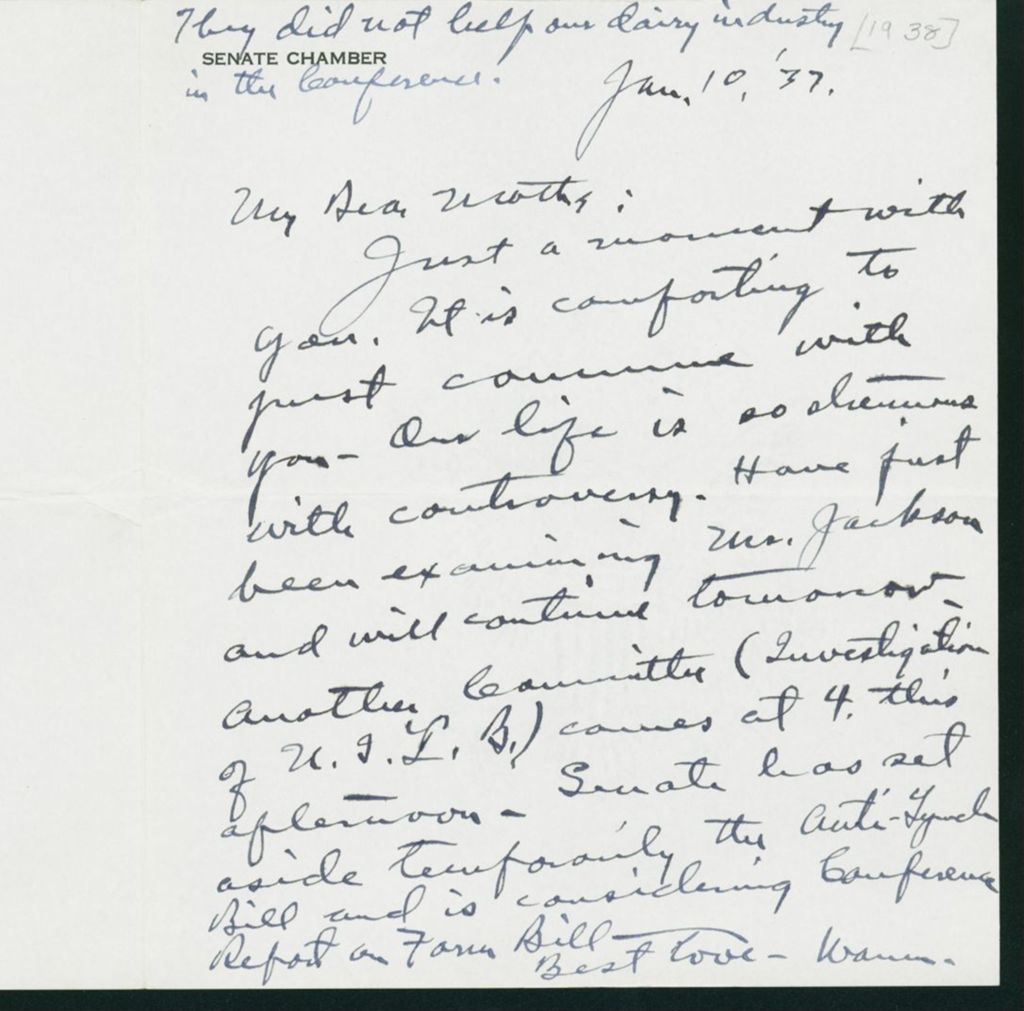 They did not help our dairy industry [1938]
SENATE CHAMBER
in the Conference.
Jan. 10, '37.
My Dear Mother:
Just a moment with
you. It is comforting to
just commune with
you - Our life is so strenuous
with controversy. Have just
been examining Mr. Jackson
and will continue tomorrow -
Another Committee (Investigation
of N. I. L. B.) comes at 4. this
afternoon - Senate has set
aside temporarily the Anti-Lynch
Bill and is considering Conference
Report on Farm Bill
Best Love - Warren.